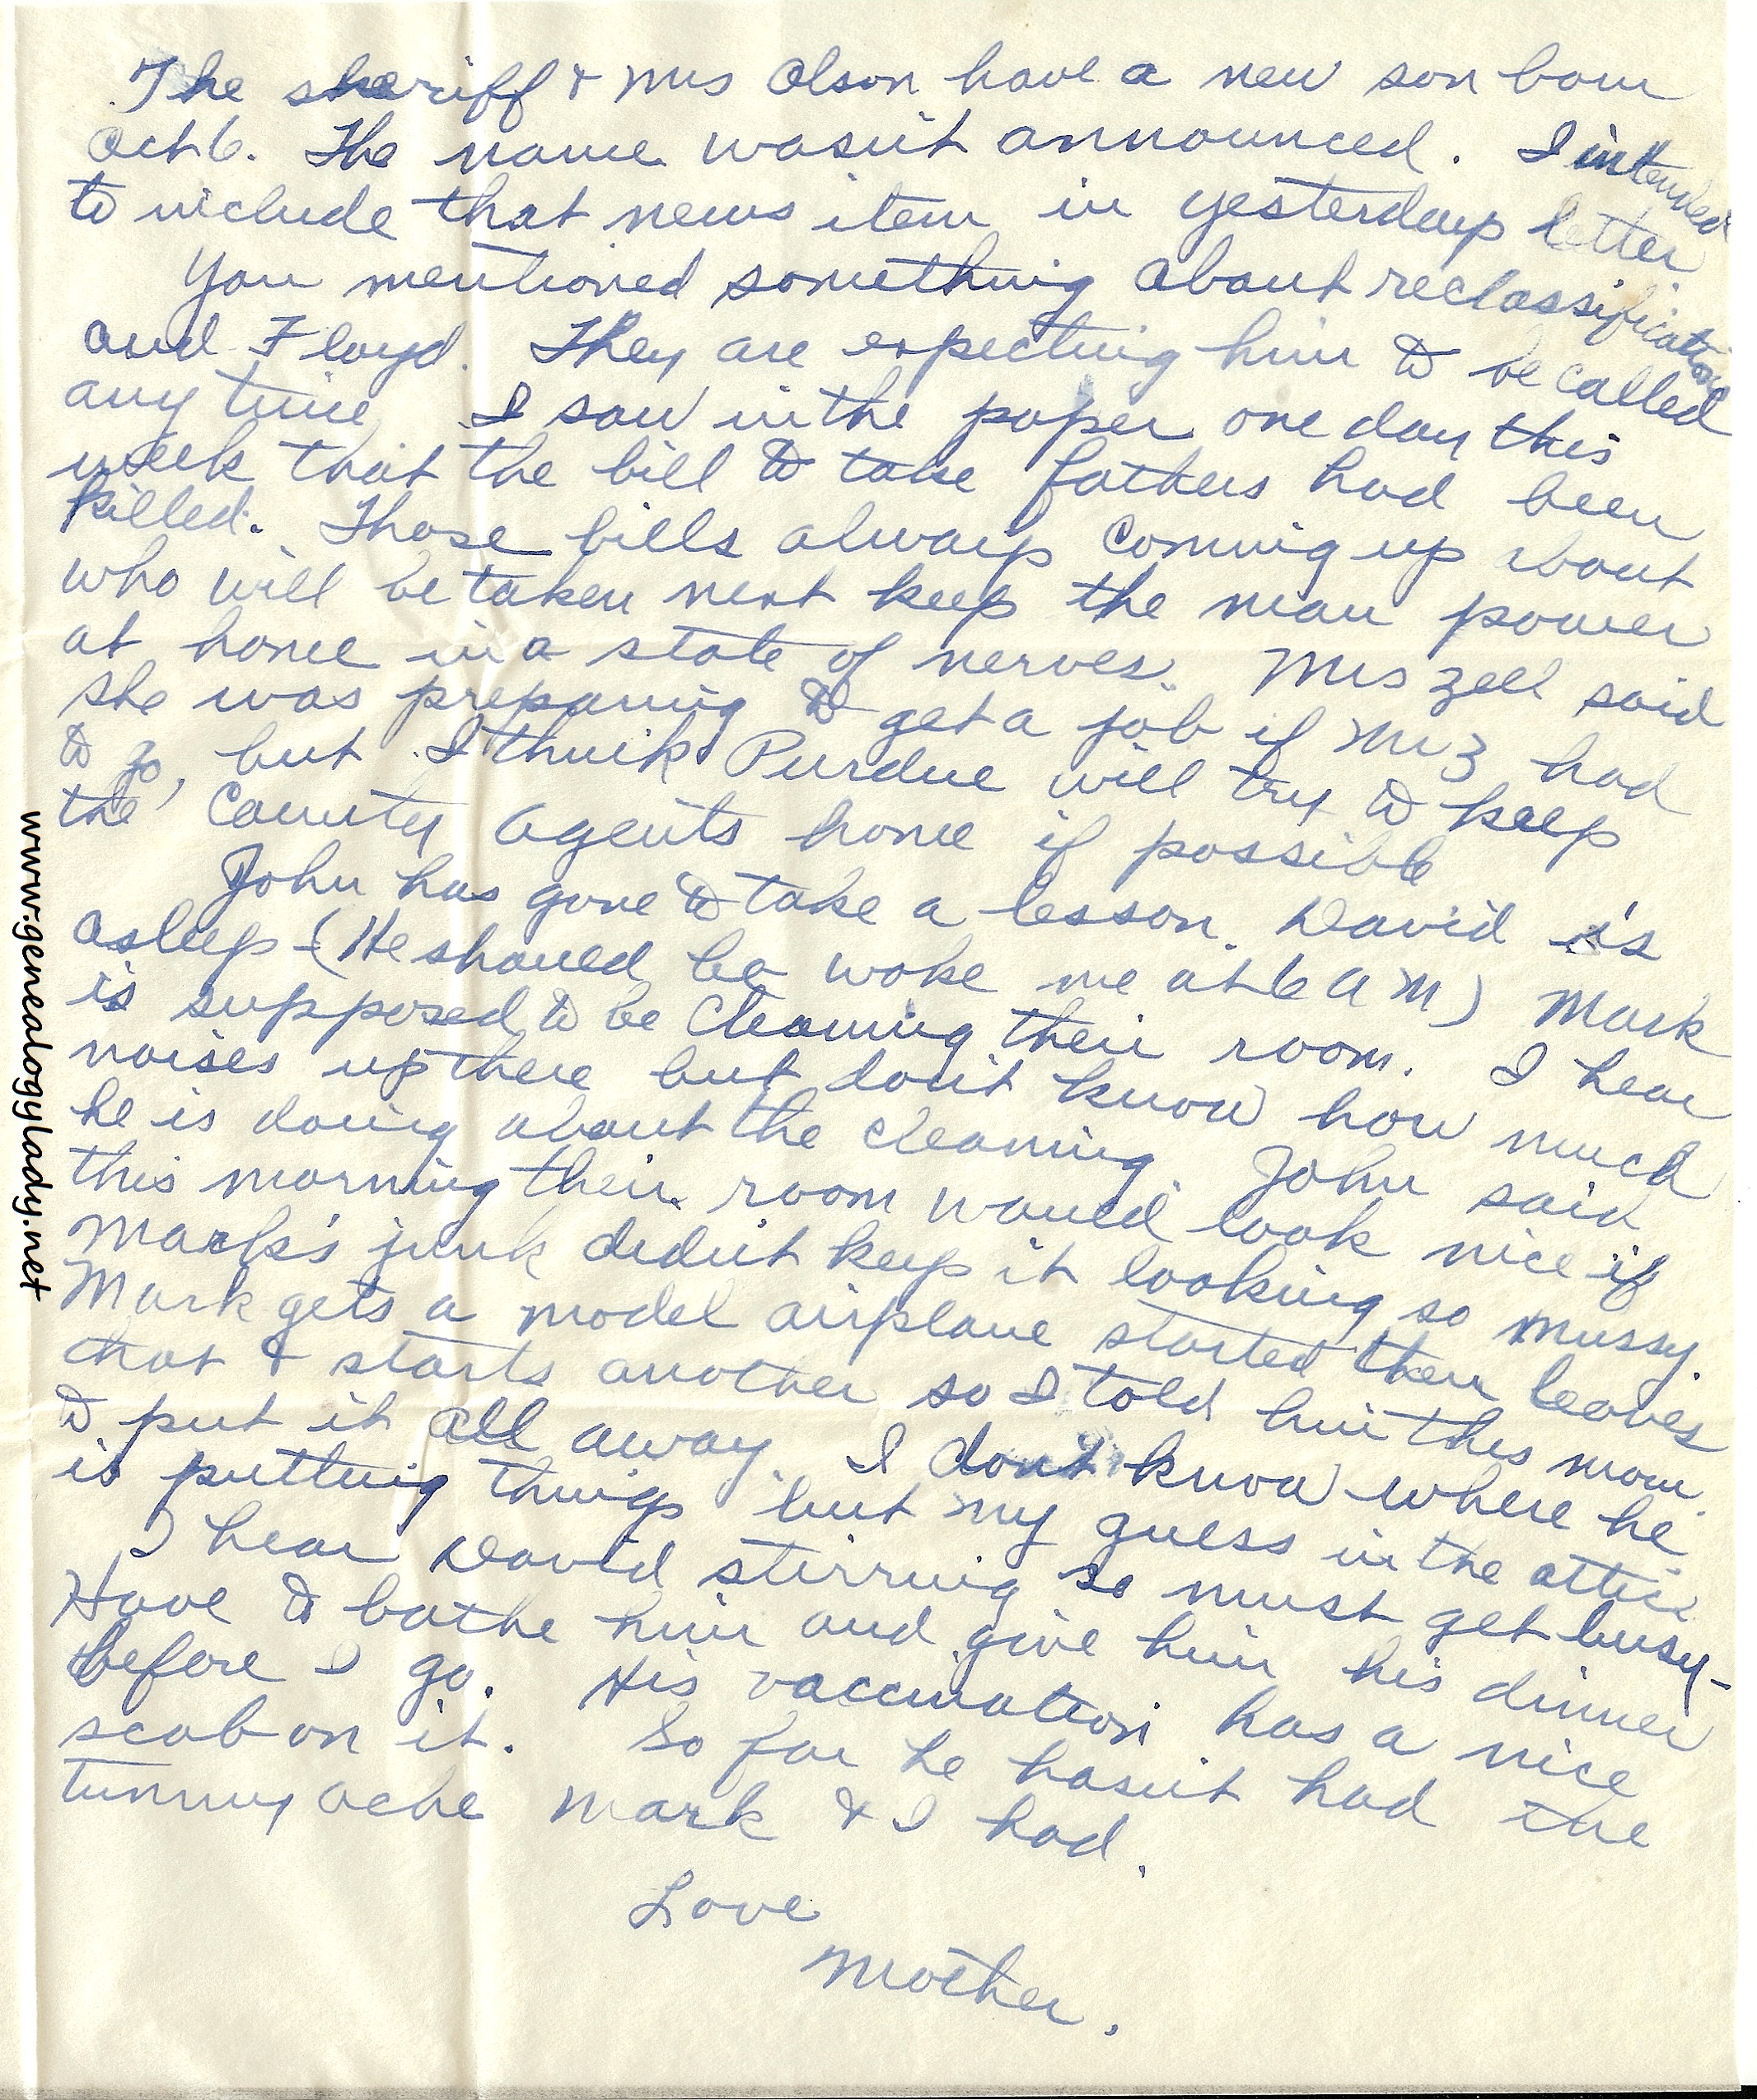 The sheriff & Mrs Olson have a new son born
Oct 6. The name wasn't announced. I intended
to include that news item in yesterdays letter
You mentioned something about reclassification
and Floyd. They are expecting him to be called
any time I saw in the paper one day this
week that the bill to take fathers had been
killed. Those bills always coming up about
who will be taken next keep the man power
at home in a state of nerves. Mrs Zell said
she was preparing to get a job if Mr Z had
to go, but I think Purdue will try to keep
the County Agents home if possible
John has gone to take a lesson. David is
asleep - (He should be woke me at 6 A M) Mark
is supposed to be cleaning their room. I hear
noises up there but don't know how much
he is doing about the cleaning John said
this morning their room would look nice if
Mark's junk didn't keep it looking so mussy.
Mark gets a model airplane started then leaves
that & starts another so I told him this morn.
to put it all away. I don't know where he
is putting things but my guess in the attic
I hear David stirring so must get busy-
Have to bathe him and give him his dinner
before I go. His vaccination has a nice
scab on it. So far he hasn't had the
tummy ache Mark & I had.
Love
Mother.
www.genealogylady.net